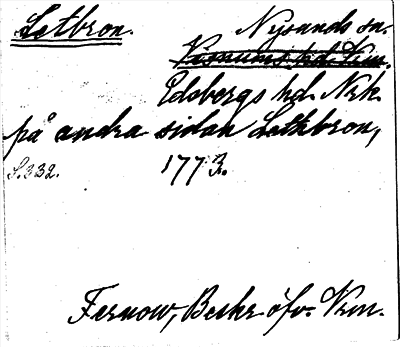 Letbron. Nysunds sn.
Visnums hd. Vrm.
Edsbergs hd. Nrk.
på andra sidan Lethbron,
S. 332. 1773.
Fernow, Beskr öfv. Vrm.